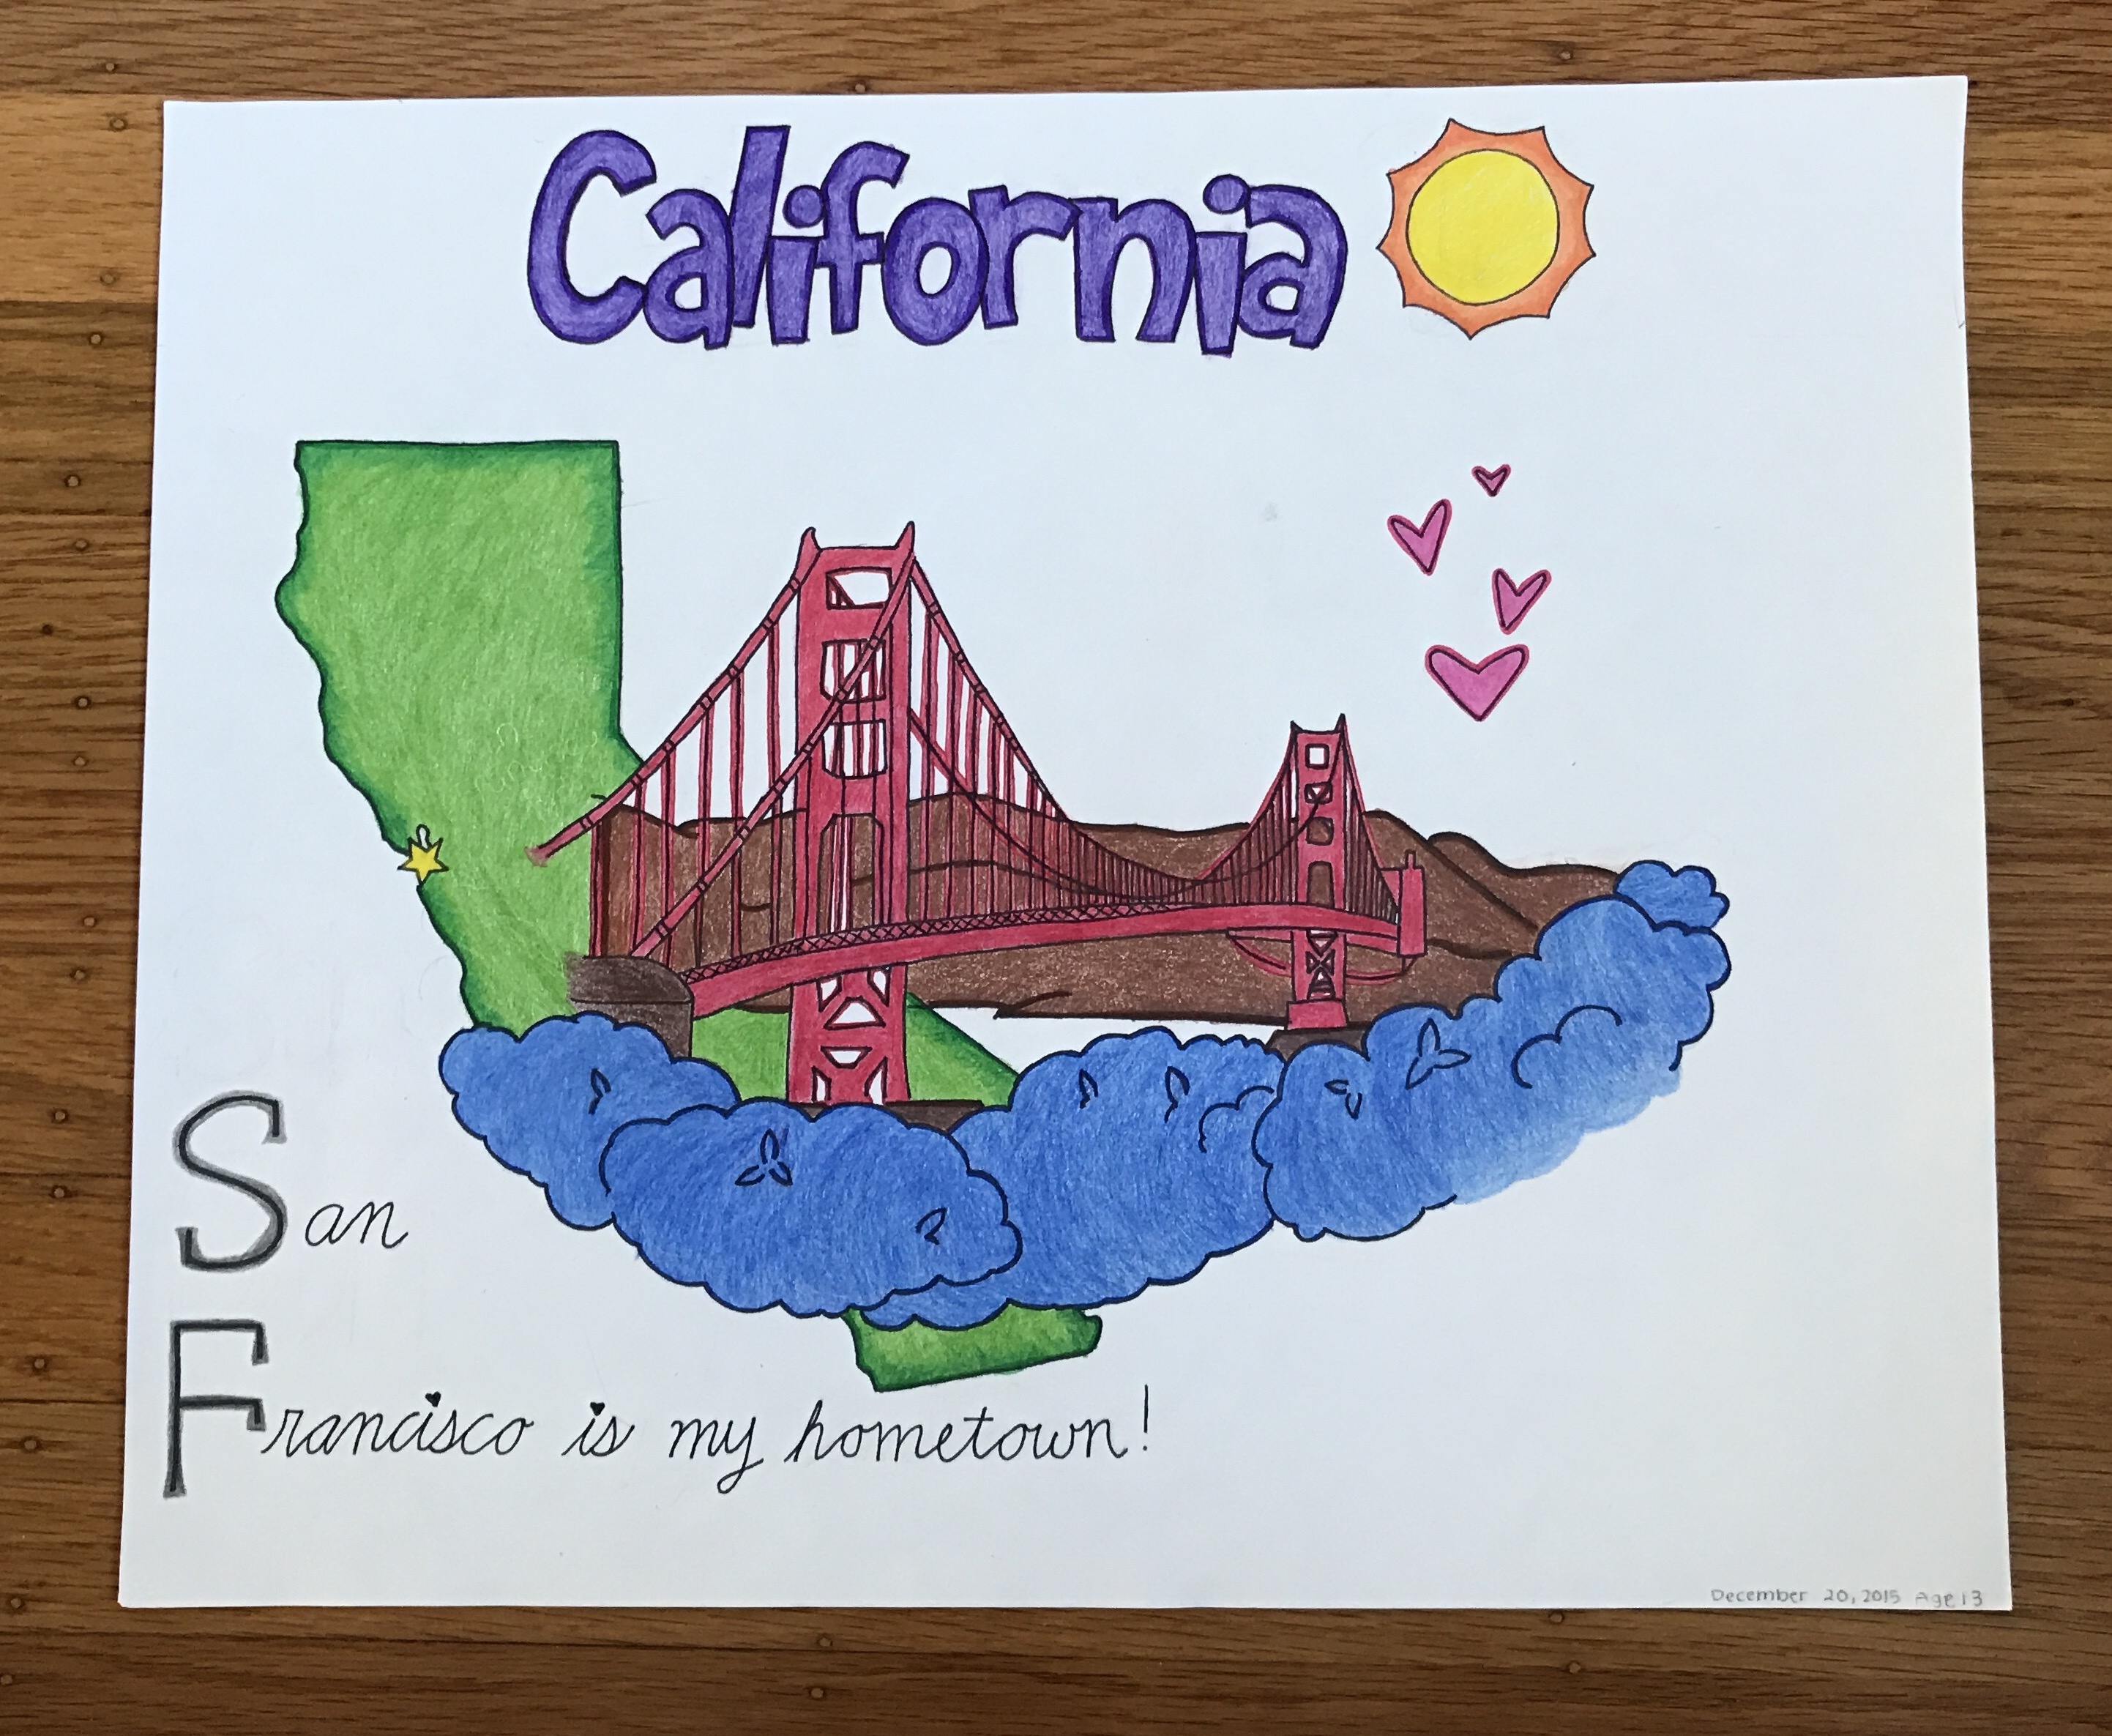 California
San
Francisco is my hometown!
December 20, 2015 Age 13